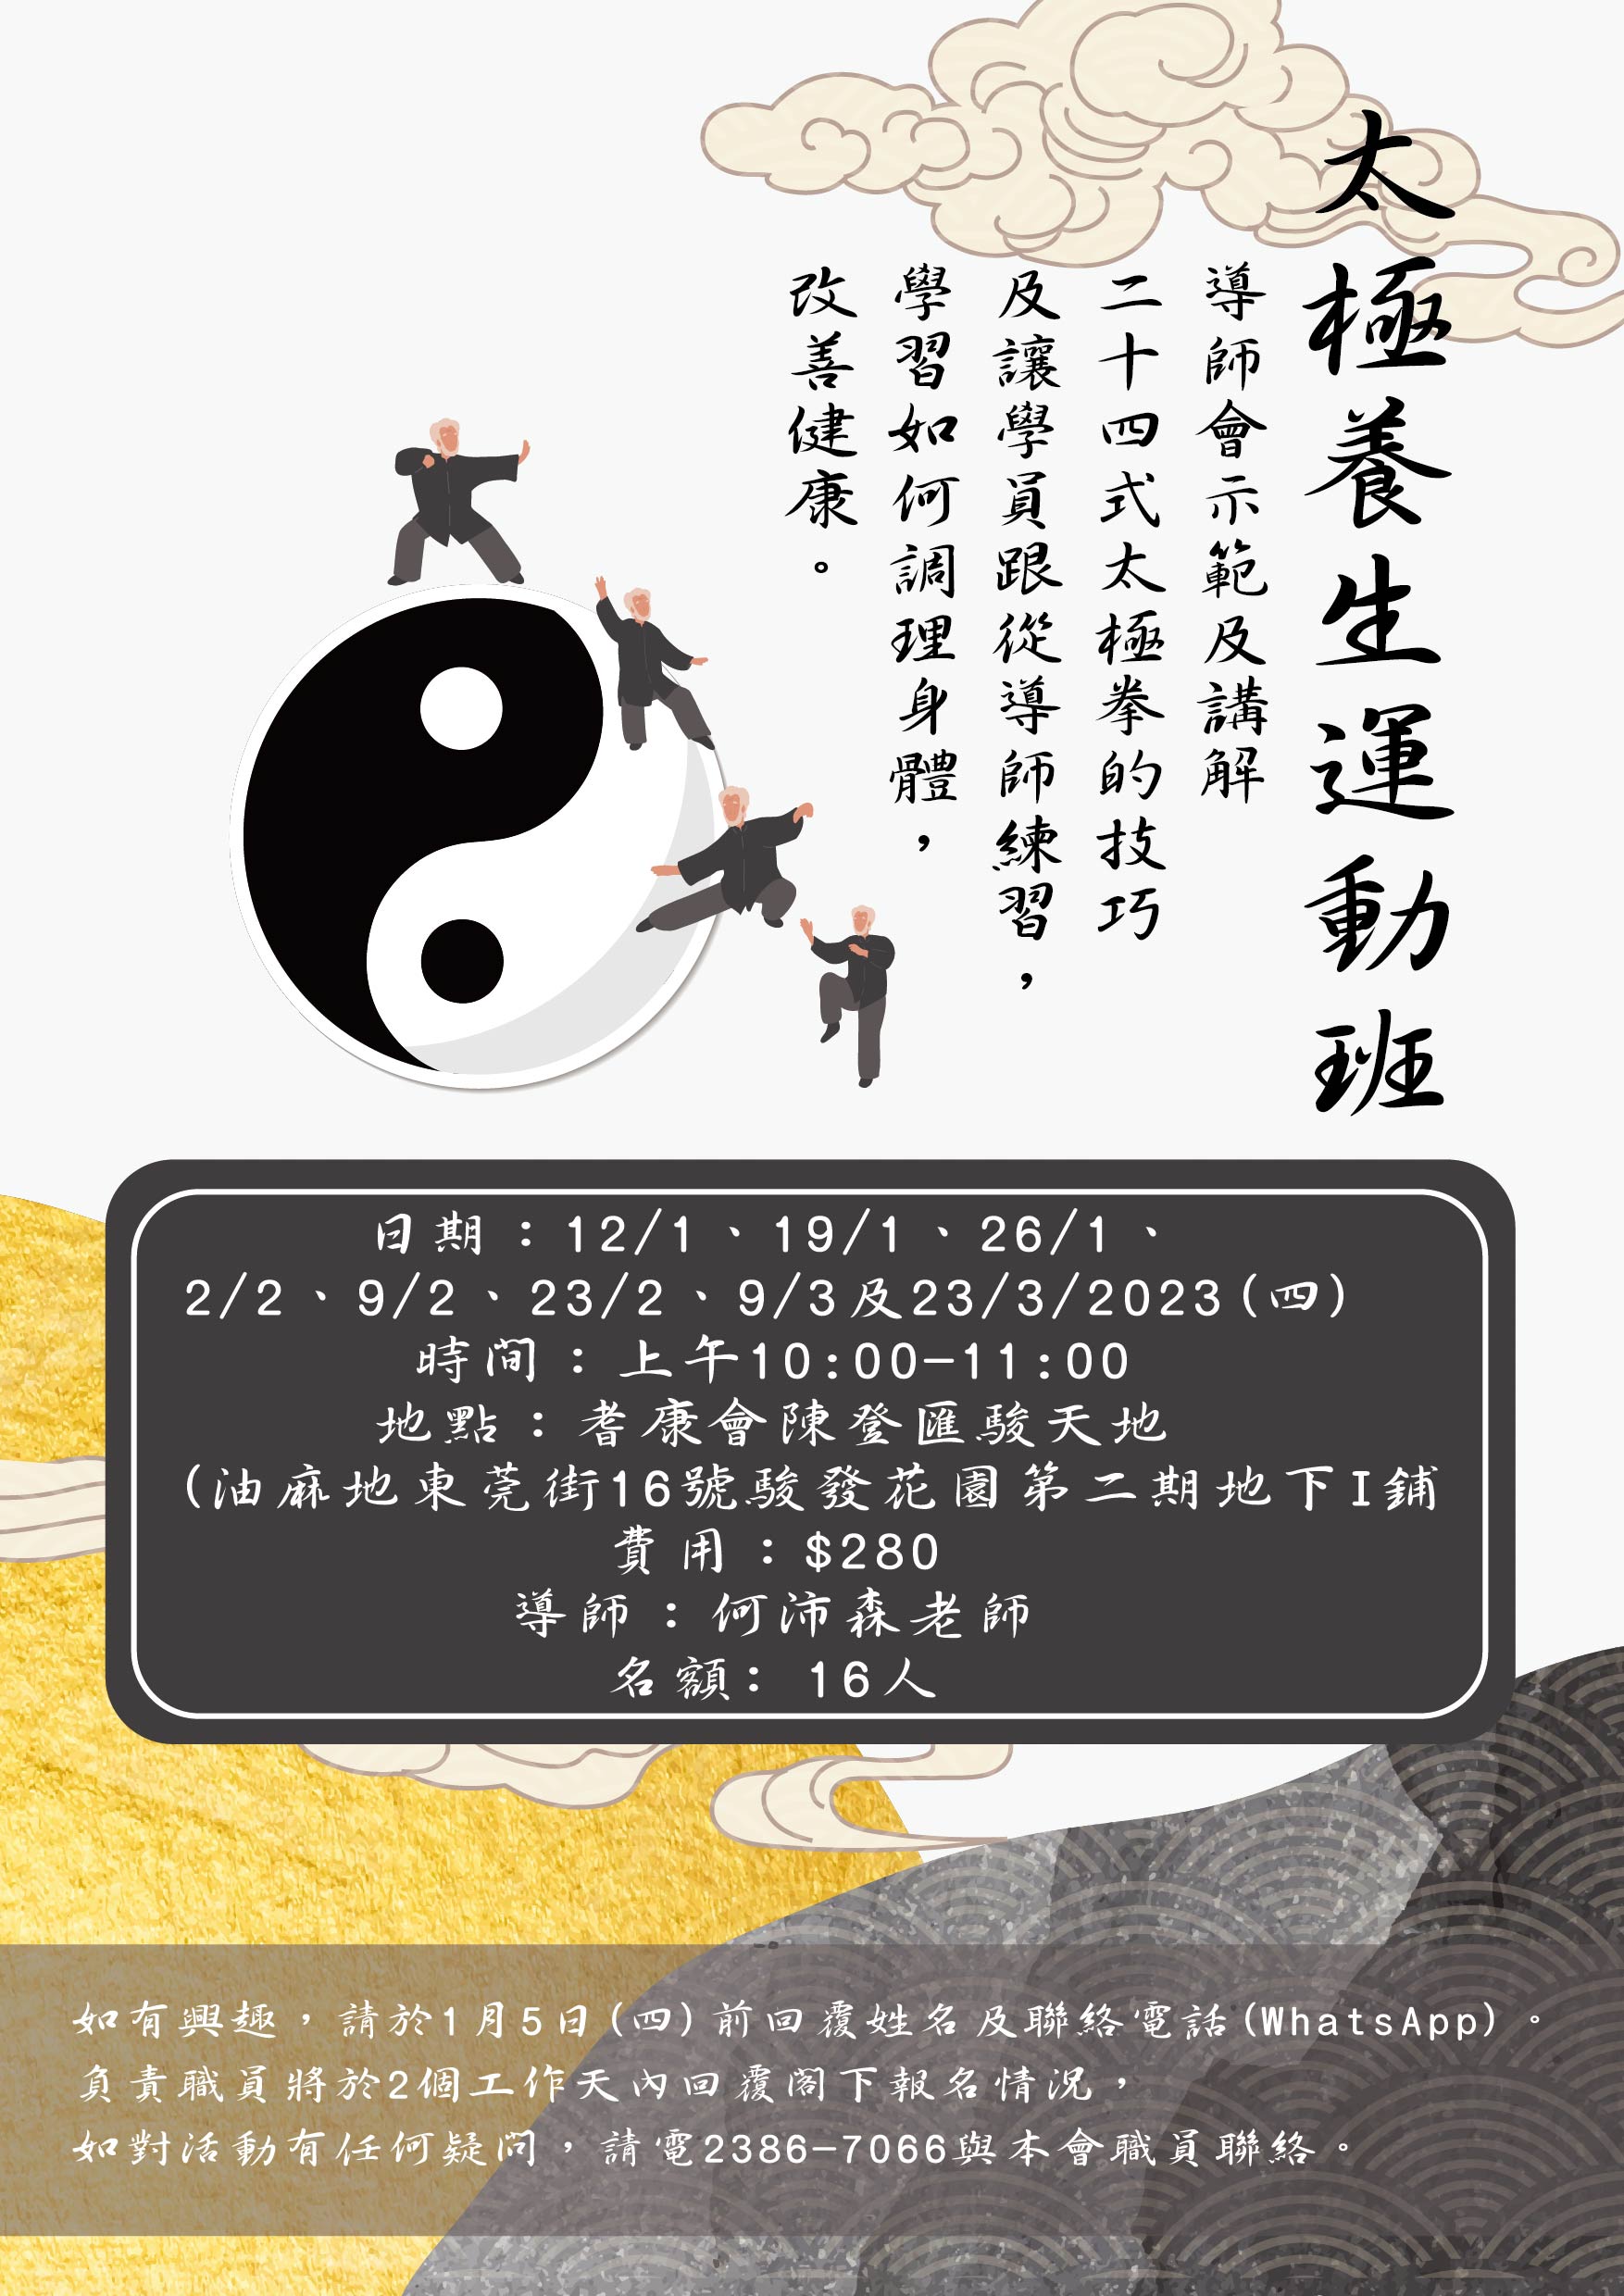 太極養生運動班
導師會示範及講解
二十四式太極拳的技巧
及讓學員跟從導師練習，
學習如何調理身體，
改善健康。
日期：12/1、19/1、26/1、
2/2、9/2、23/2、9/3及23/3/2023(四)
時間：上午10:00-11:00
地點：耆康會陳登匯駿天地
(油麻地東莞街16號駿發花園第二期地下I鋪
費用：$280
導師：何沛森老師
名額: 16人
如有興趣，請於1月5日(四)前回覆姓名及聯絡電話(WhatsApp)。
負責職員將於2個工作天內回覆閣下報名情況，
如對活動有任何疑問，請電2386-7066與本會職員聯絡。